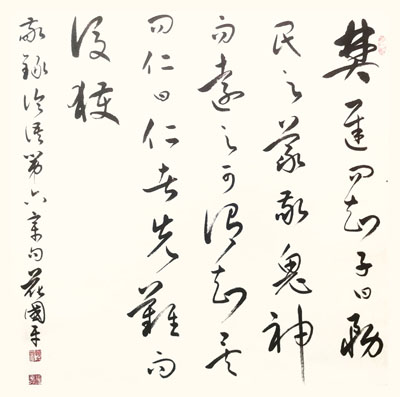 樊遲問知子曰務
民之義敬鬼神
而遠之可謂知矣
問仁曰仁者先難而
後獲
敬錄論語第六章句花國平